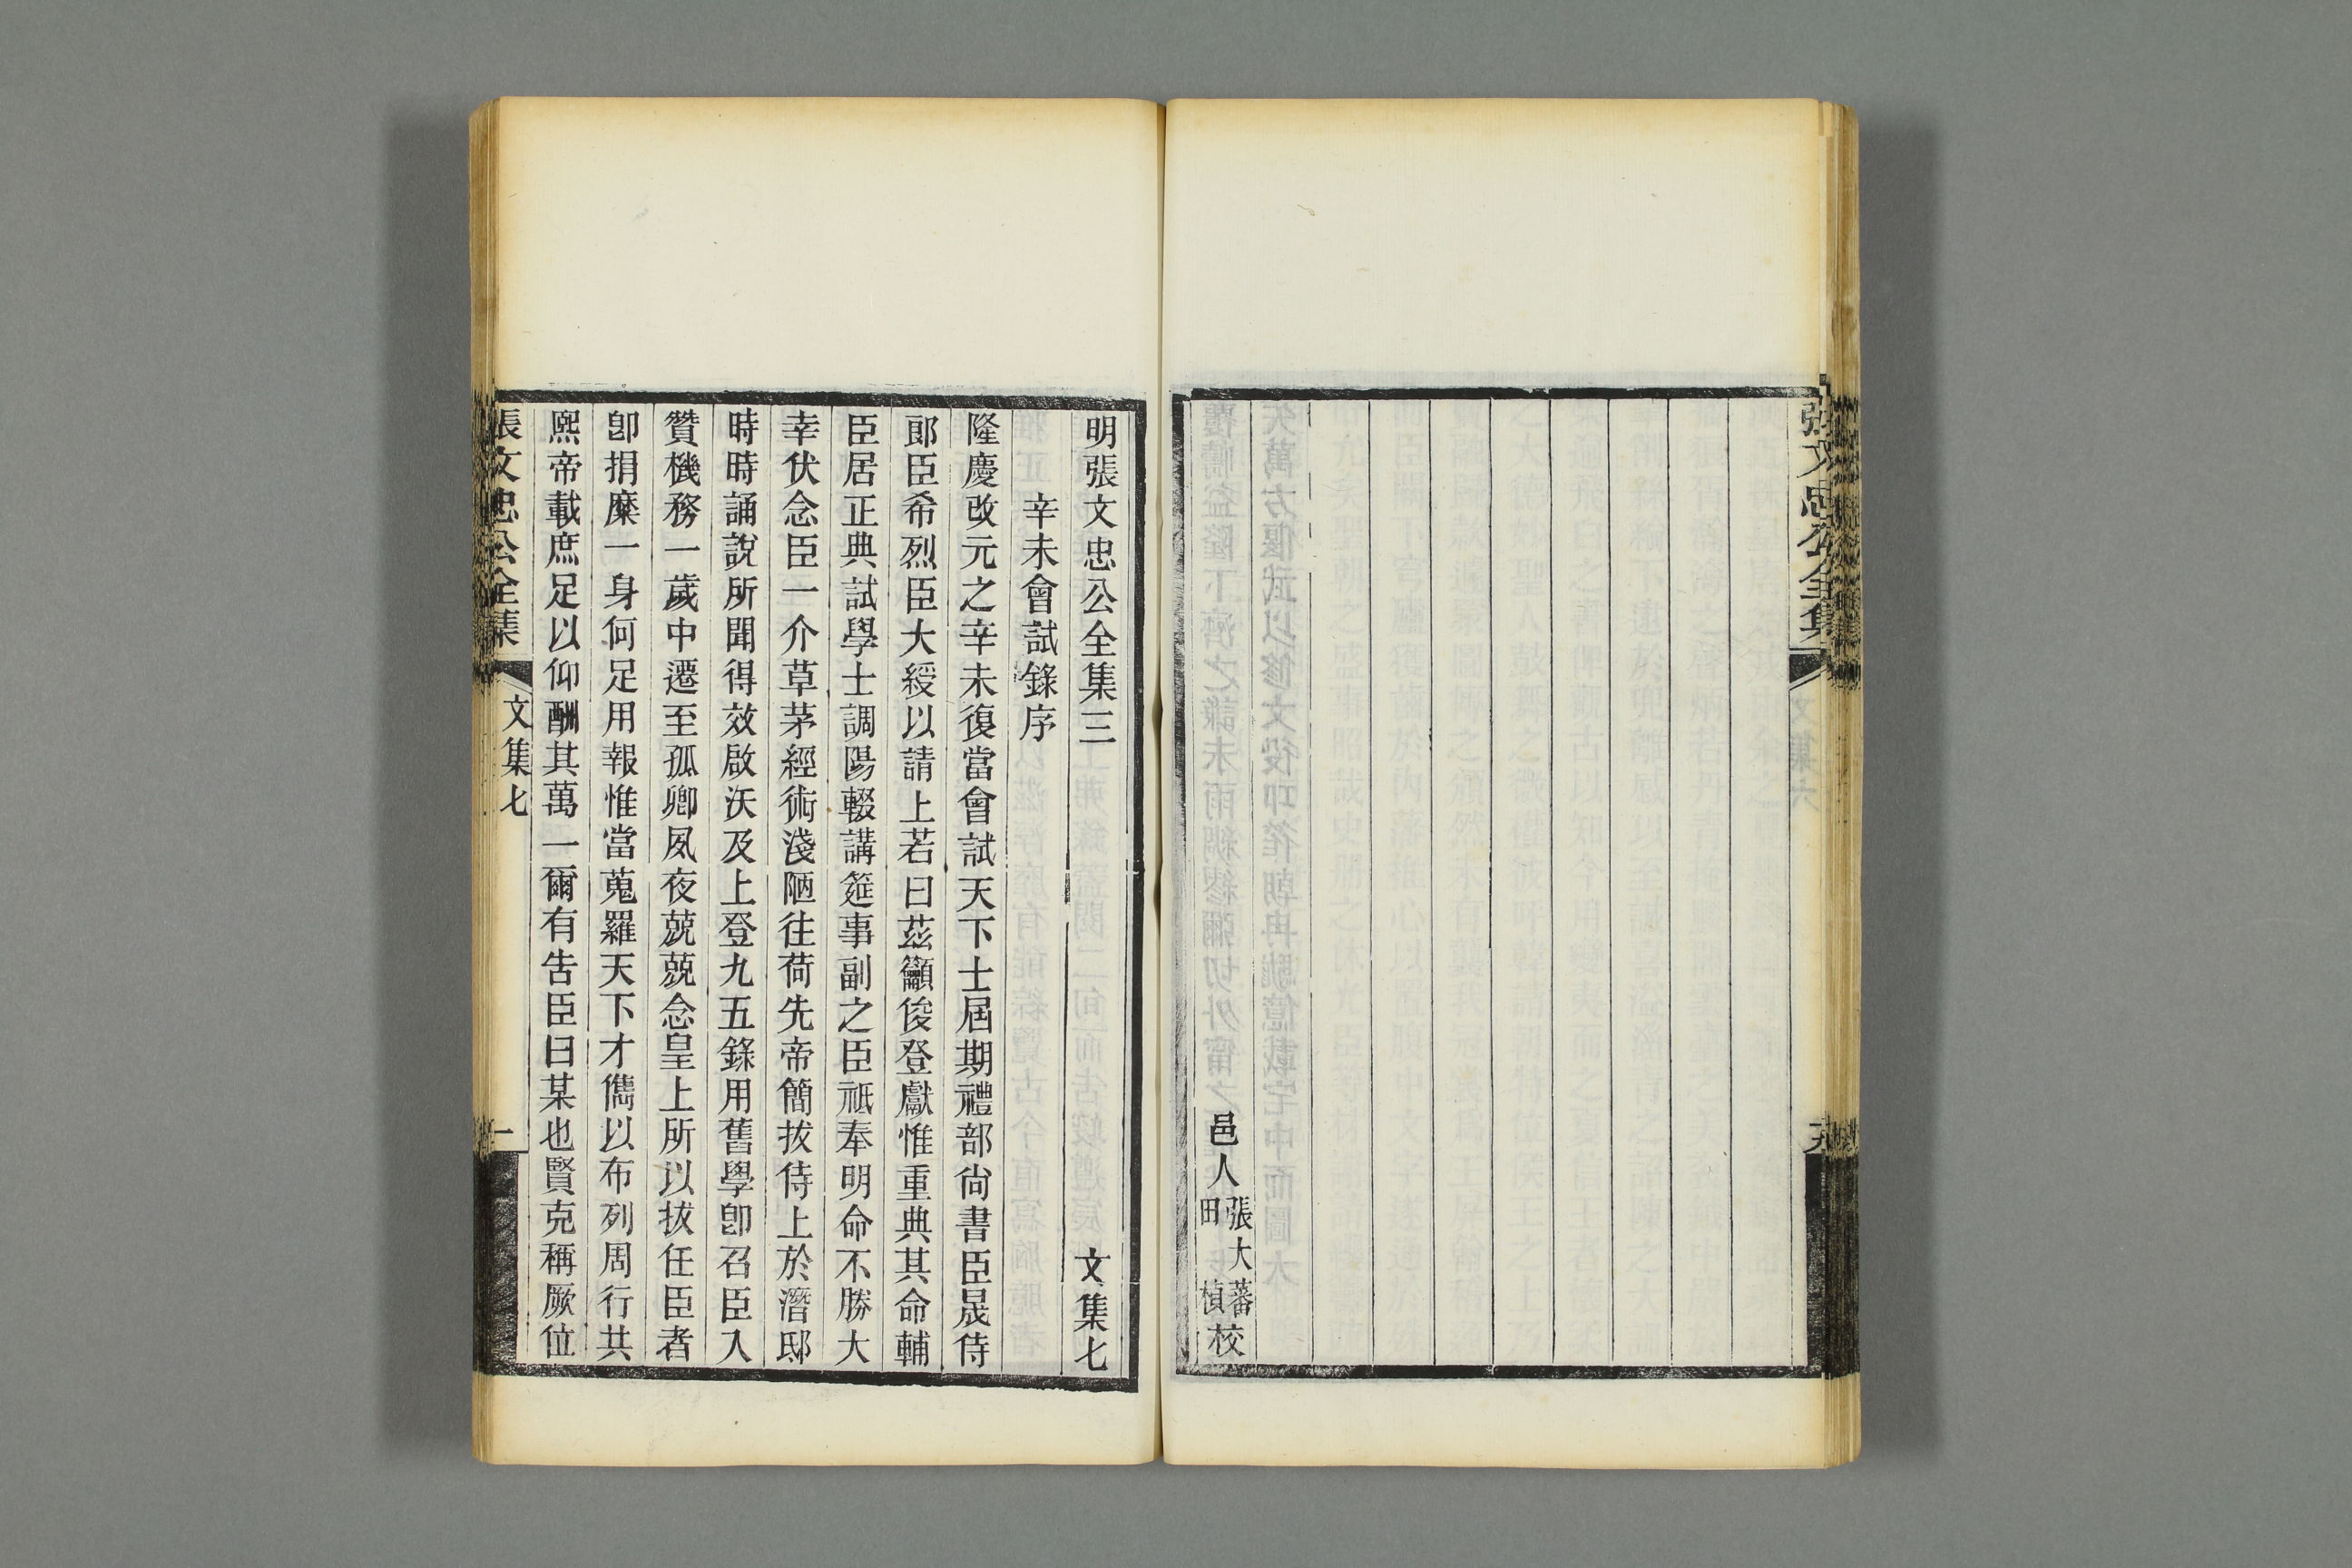 張文忠公全集
邑人張大蕃田楨校
明張文忠公全集三　文集七
辛未會試錄序
隆慶改元之辛未復當會試天下士屆期禮部尙書臣晟侍
郞臣希烈臣大綬以請上若曰茲籲俊登獻惟重典其命輔
臣居正典試學士調陽輟講筵事副之臣祗奉明命不勝大
幸伏念臣一介草茅經術淺陋往荷先帝簡拔侍上於潛邸
時時誦說所聞得效啟沃及上登九五錄用舊學卽召臣入
贊機務一歲中遷至孤卿夙夜兢兢念皇上所以拔任臣者
卽捐糜一身何足用報惟當蒐羅天下才儁以布列周行共
熙帝載庶足以仰酬其萬一爾有告臣曰某也賢克稱厥位
張文忠公全集
文集七
一